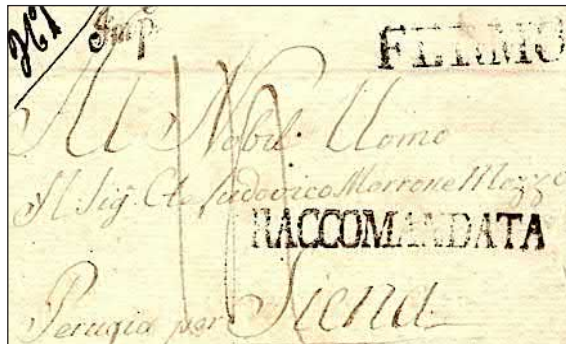 FERMO
Al Nobil Uomo
Il Sig. Cte Ludovico Marrone Mozzo
RACCOMANDATA
Perugia per Siena